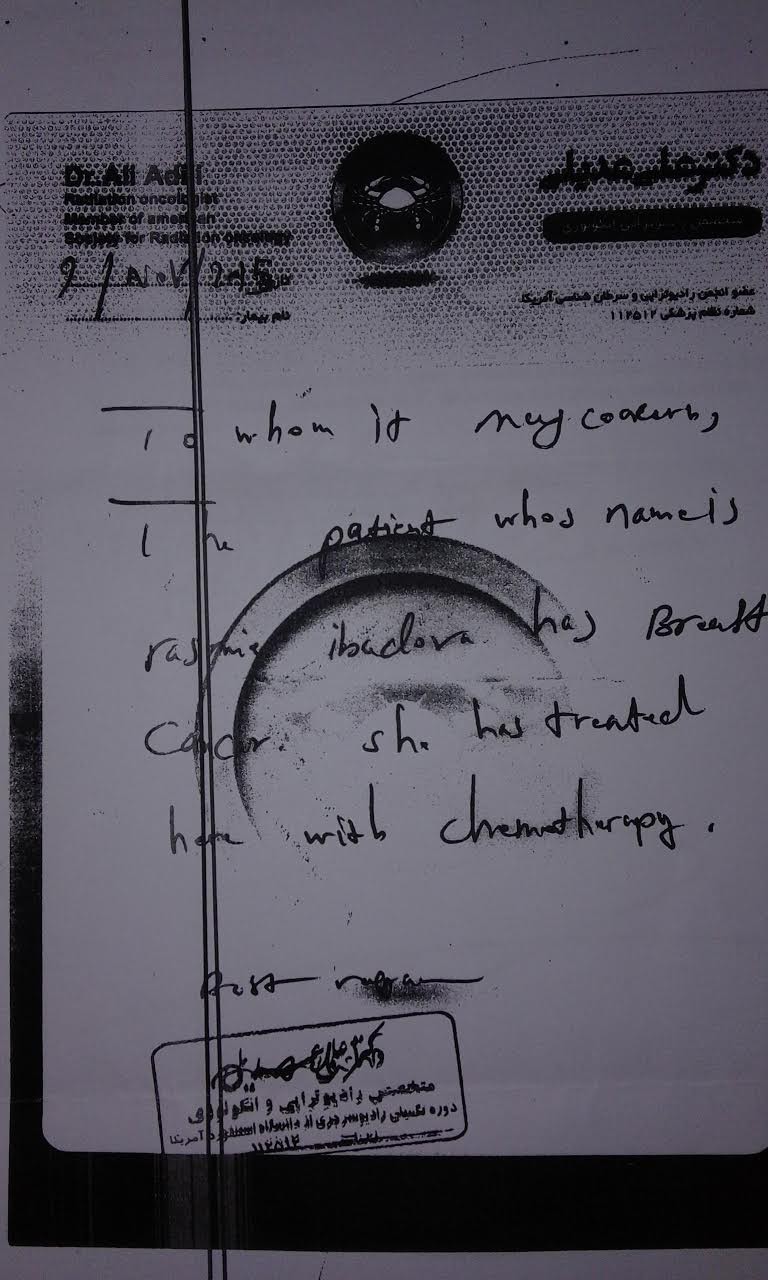 Dr.Ali Adili
Radiation oncologist
Member of american
Society for Radiation oncology
دکتر علی عدیلی
متخصص رادیوتراپی انکولوژی
عضو انجمن رادیوتراپی و سرطان شناسی آمریکا
شماره نظام پزشکی ۱۱۲۵۱۲
9/NOV/2015 تاریخ:
نام بیمار:
To whom it may concern,
The patient whos name is
rasmie ibadova has Breast
Cancer. she has treated
here with chemotherapy.
Best
متخصص رادیوتراپی و انکولوژی
دوره تکمیلی رادیوسرجری از دانشگاه استنفورد آمریکا
۱۱۲۵۱۲